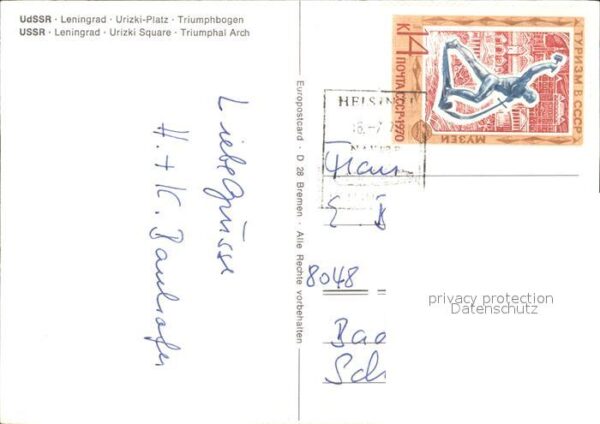 UdSSR · Leningrad · Urizki-Platz · Triumphbogen
USSR · Leningrad · Urizki Square · Triumphal Arch
Liebe Grüsse
H. + K.
Europostcard · D 28 Bremen · Alle Rechte vorbehalten
14
К
ПОЧТА СССР·1970
ТУРИЗМ В СССР
МУЗЕИ
HELSIN
Frau
8048
privacy protection
Datenschutz
Bad
Sch